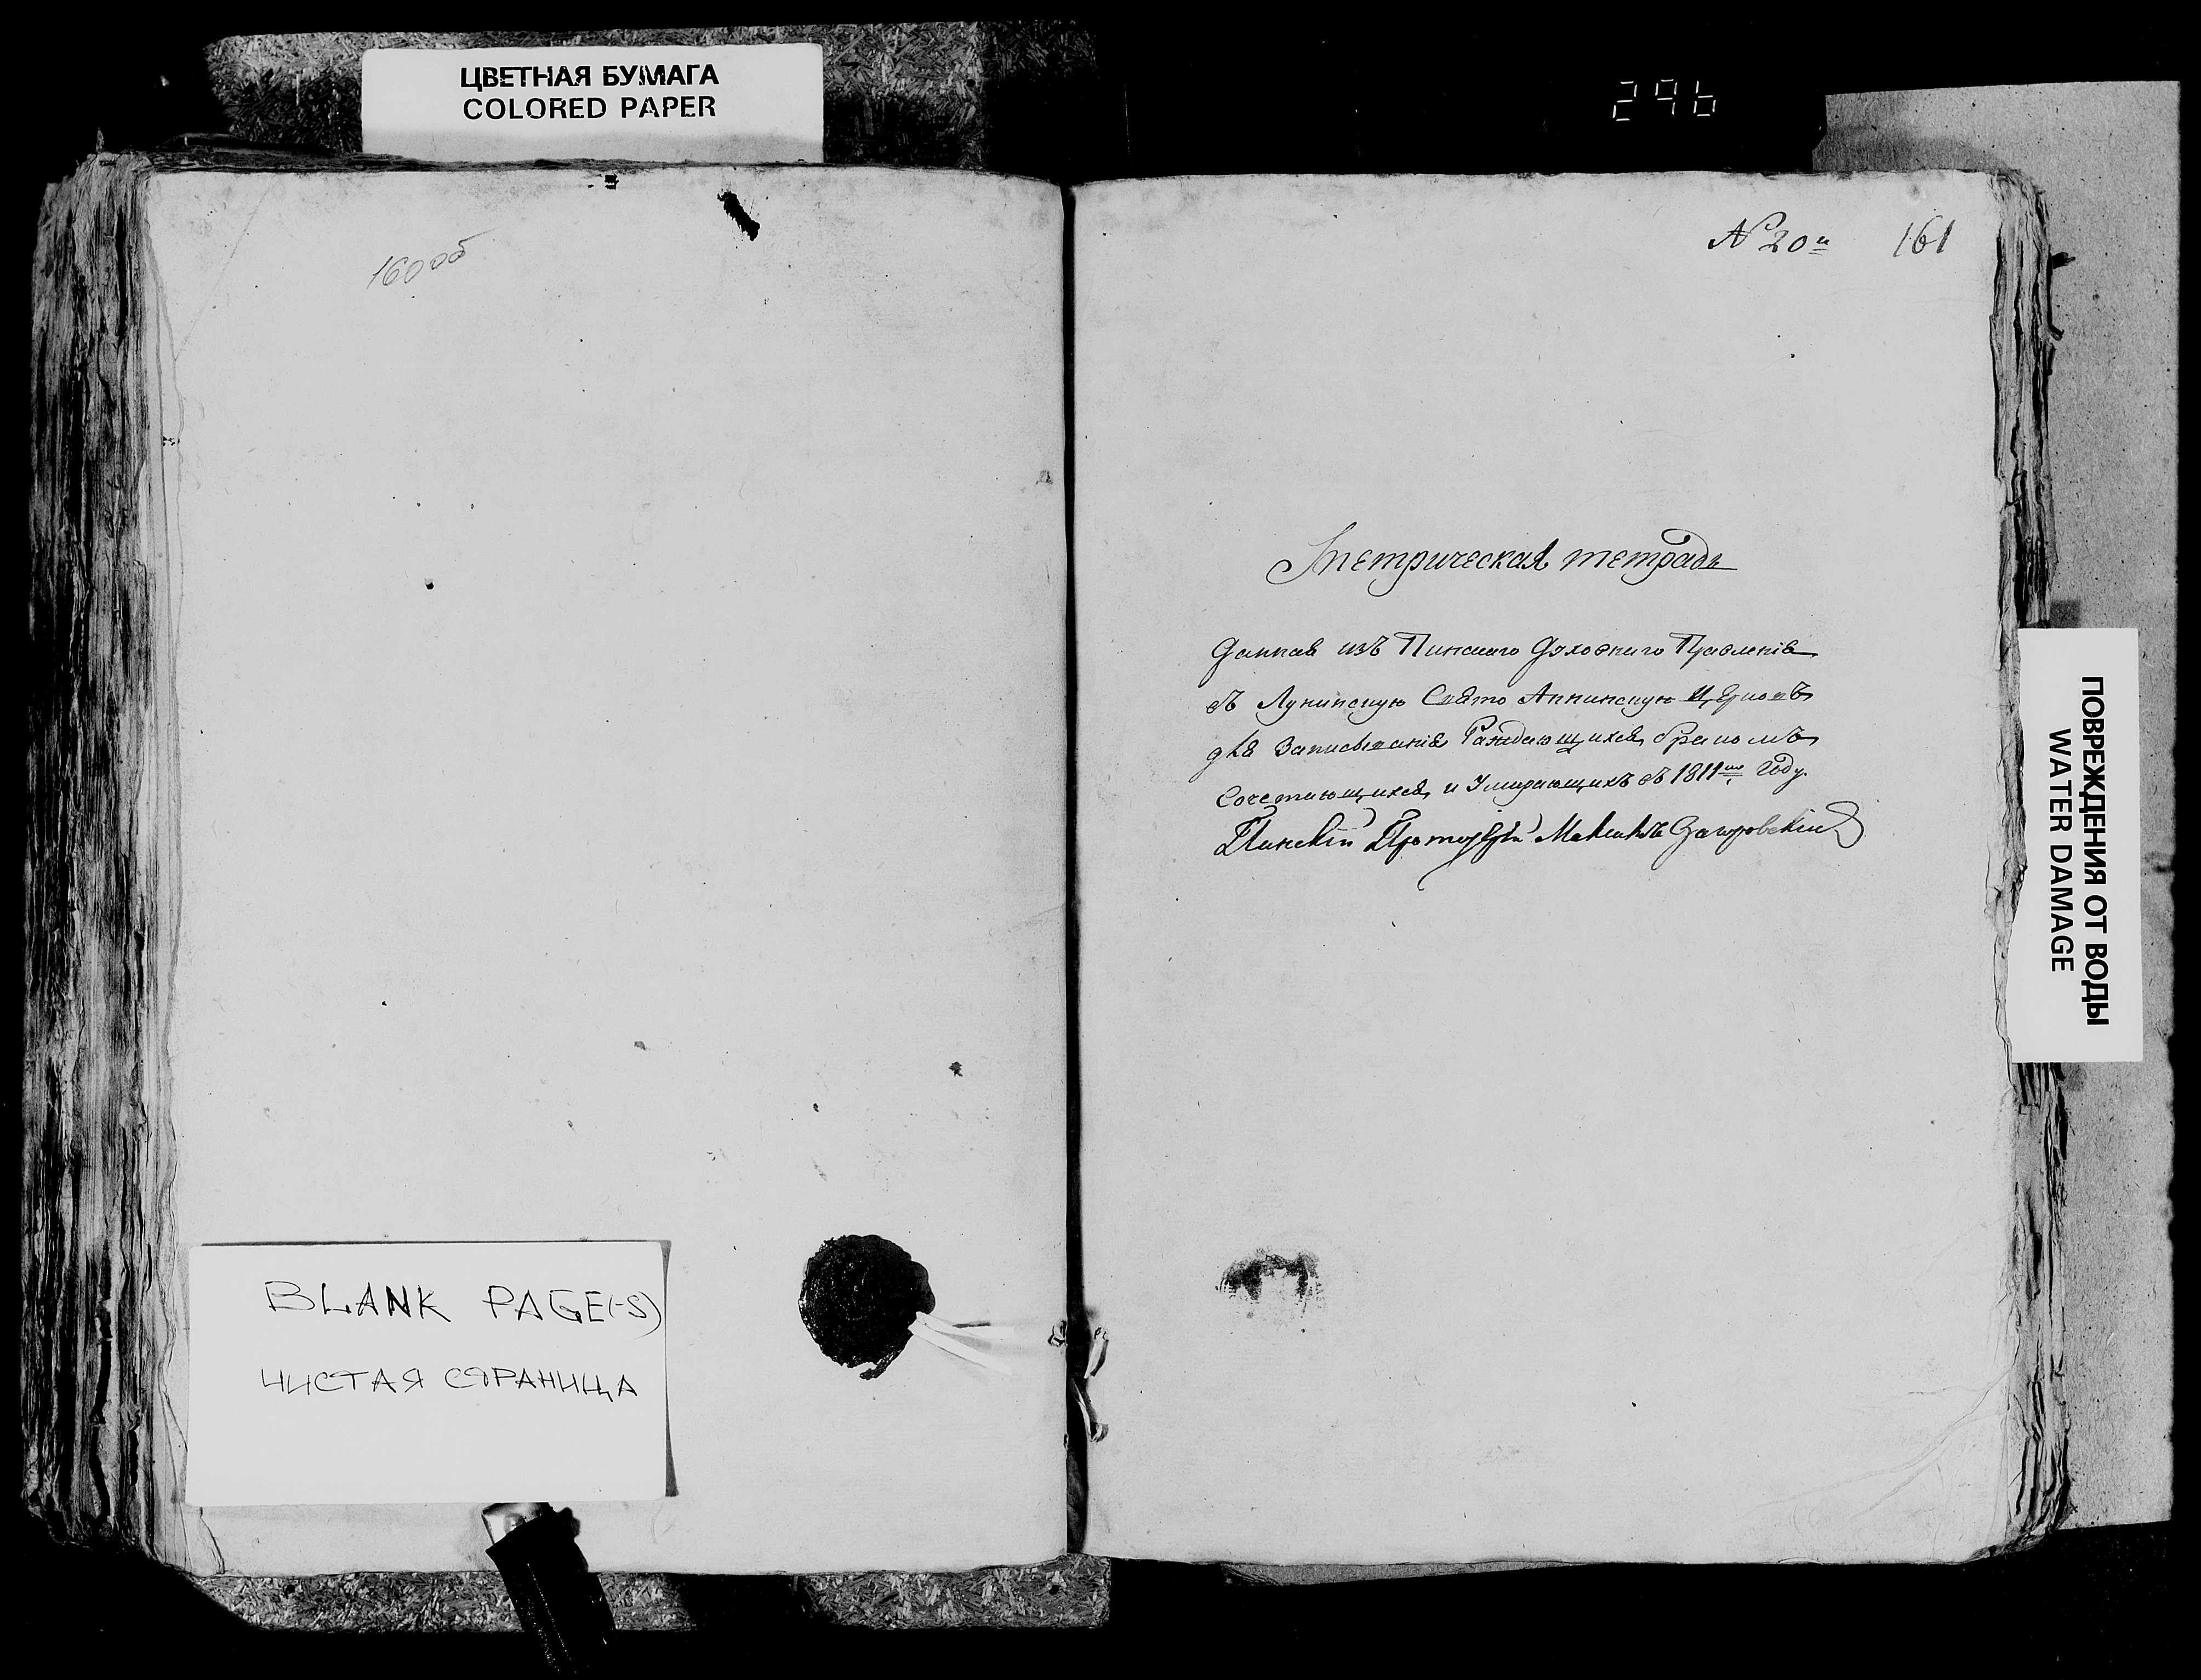 ЦВЕТНАЯ БУМАГА
COLORED PAPER
296
160 об
№ 20й 161
Метрическая тетрадь
данная изъ Пинскаго Духовнаго Правленія
въ Лунинскую Свято Аннинскую Церковъ
для Записыванія Раждающихся, бракомъ
Сочетающихся, и Умирающихъ въ 1811мъ году.
Пинскій Протоіерей
BLANK PAGE(-S)
ЧИСТАЯ СТРАНИЦА
ПОВРЕЖДЕНИЯ ОТ ВОДЫ
WATER DAMAGE